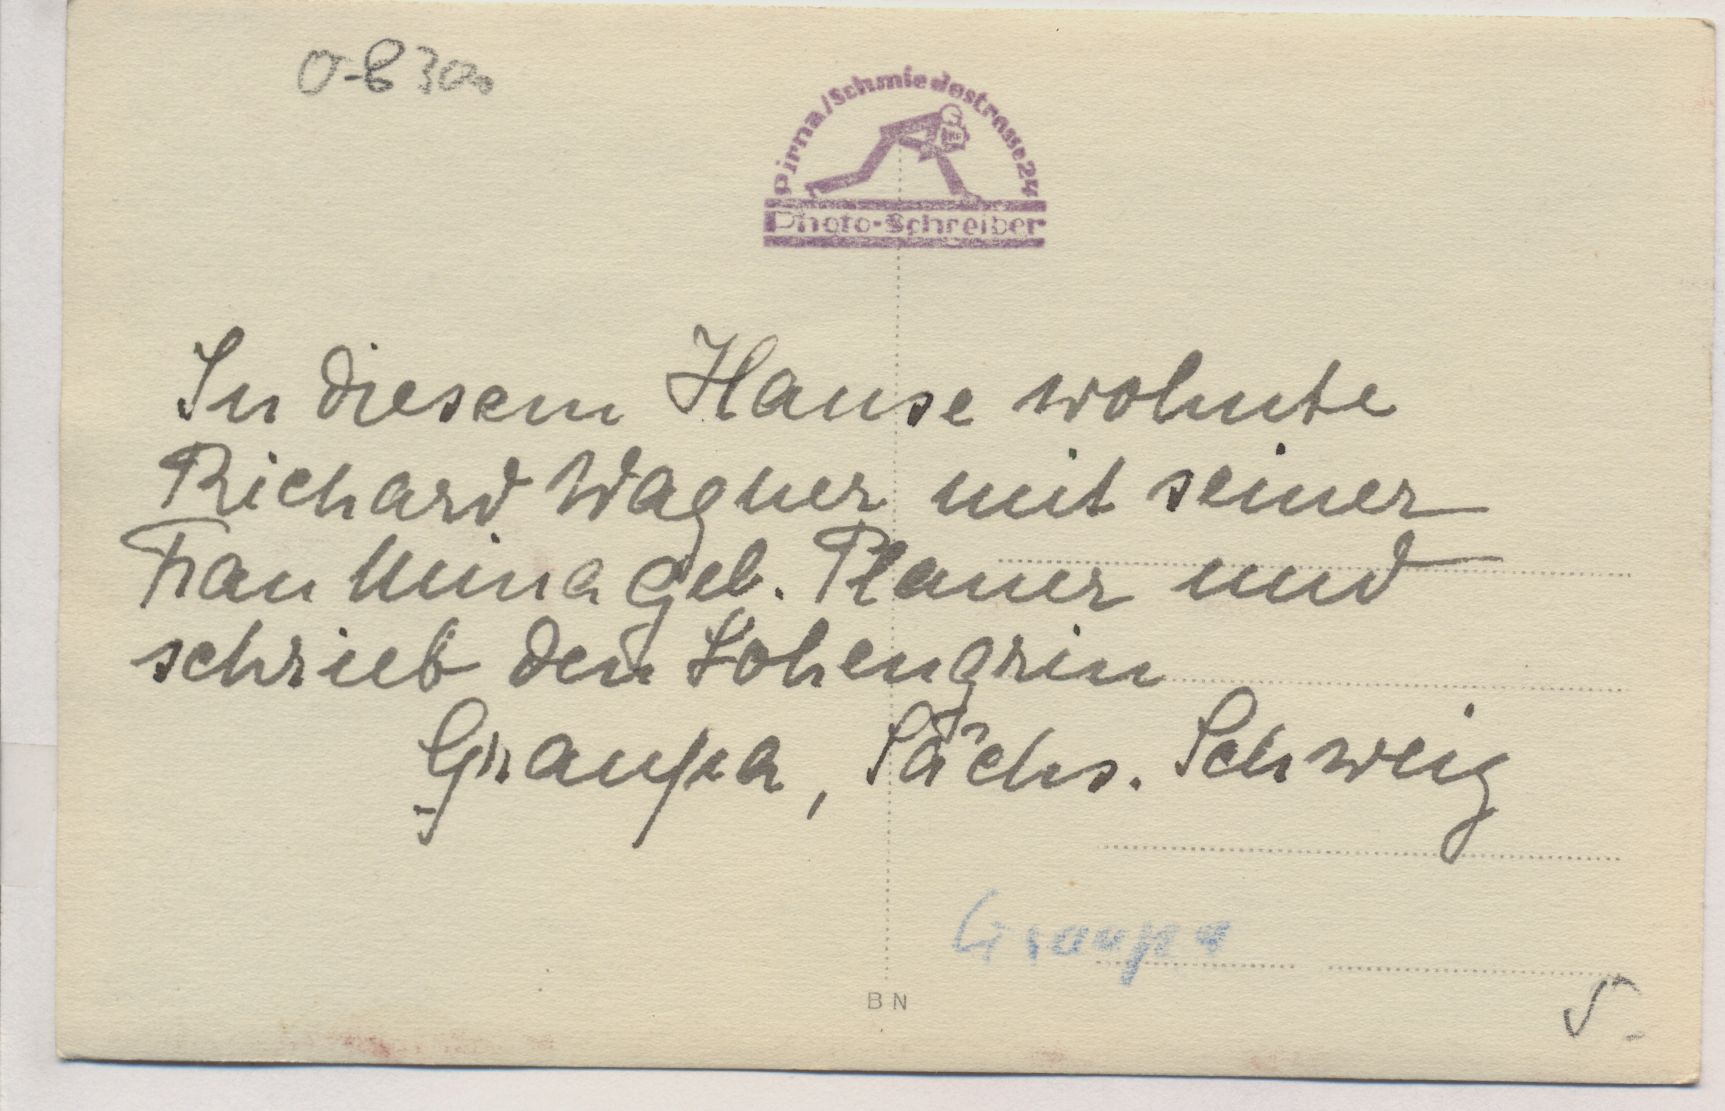 O-8300
Pirna/Schmiedestrasse 24
Photo-Schreiber
In diesem Hause wohnte
Richard Wagner mit seiner
Frau Minna geb. Planer und
schrieb den Lohengrin
Graupa, Sächs. Schweiz
Graupa
BN
5.-